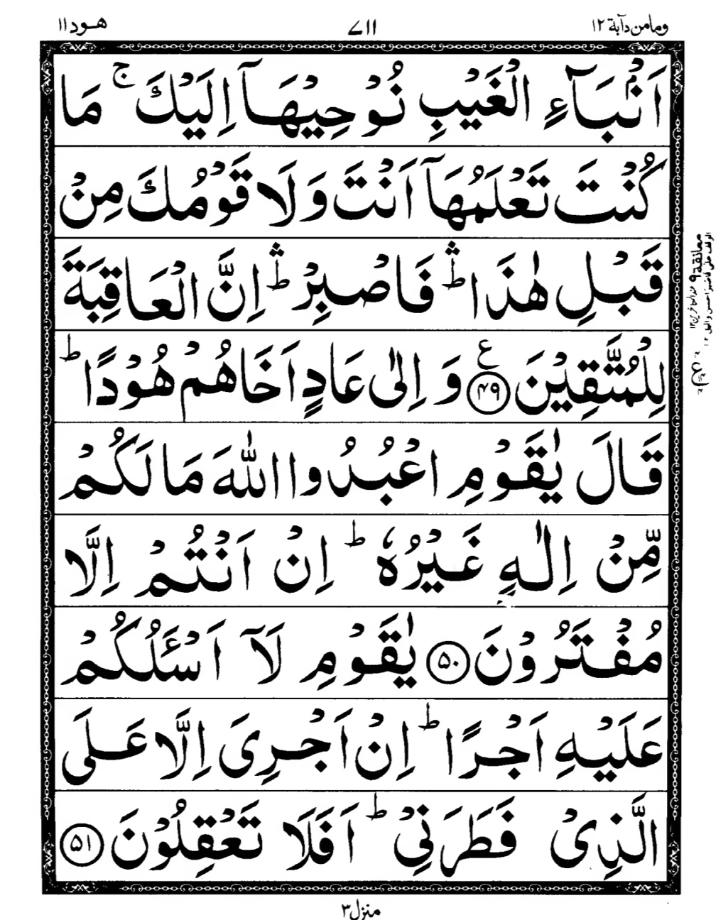 ومامن دآبة ١٢ ٧١١ هود ١١
اَنْۢبَآءِ الْغَيْبِ نُوْحِيْهَاۤ اِلَيْكَ ۚ مَا
كُنْتَ تَعْلَمُهَاۤ اَنْتَ وَلَا قَوْمُكَ مِنْ
قَبْلِ هٰذَا ۛؕ فَاصْبِرْ ۛؕ اِنَّ الْعَاقِبَةَ
لِلْمُتَّقِيْنَ ﴿۴۹﴾ ع وَ اِلٰى عَادٍ اَخَاهُمْ هُوْدًا ؕ
قَالَ يٰقَوْمِ اعْبُدُوا اللّٰهَ مَا لَكُمْ
مِّنْ اِلٰهٍ غَيْرُهٗ ؕ اِنْ اَنْتُمْ اِلَّا
مُفْتَرُوْنَ ﴿۵۰﴾ يٰقَوْمِ لَاۤ اَسْـَٔلُكُمْ
عَلَيْهِ اَجْرًا ؕ اِنْ اَجْرِىَ اِلَّا عَلَى
الَّذِىْ فَطَرَنِىْ ؕ اَفَلَا تَعْقِلُوْنَ ﴿۵۱﴾
معانقة ٩
منزل ٣